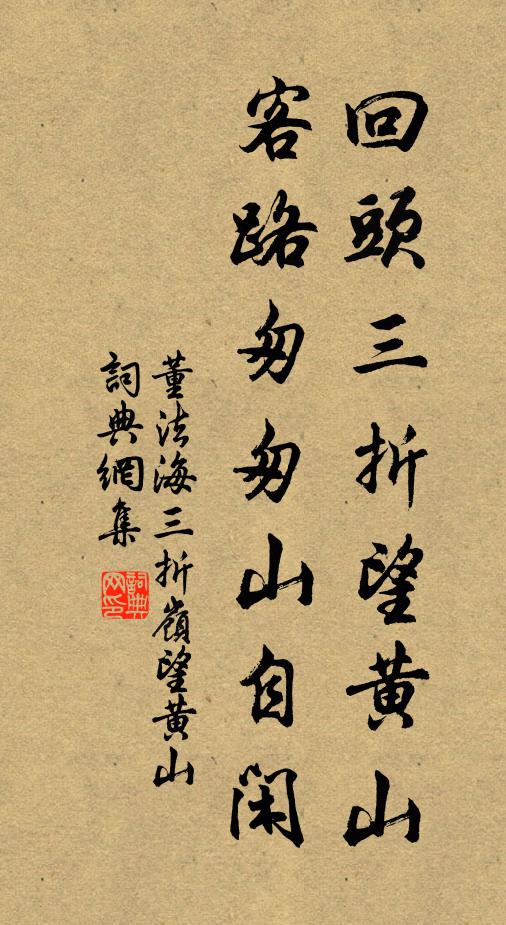 回頭三折望黄山
客路匆匆山自閑
董法海三折嶺望黄山
詞典網集
詞典网印